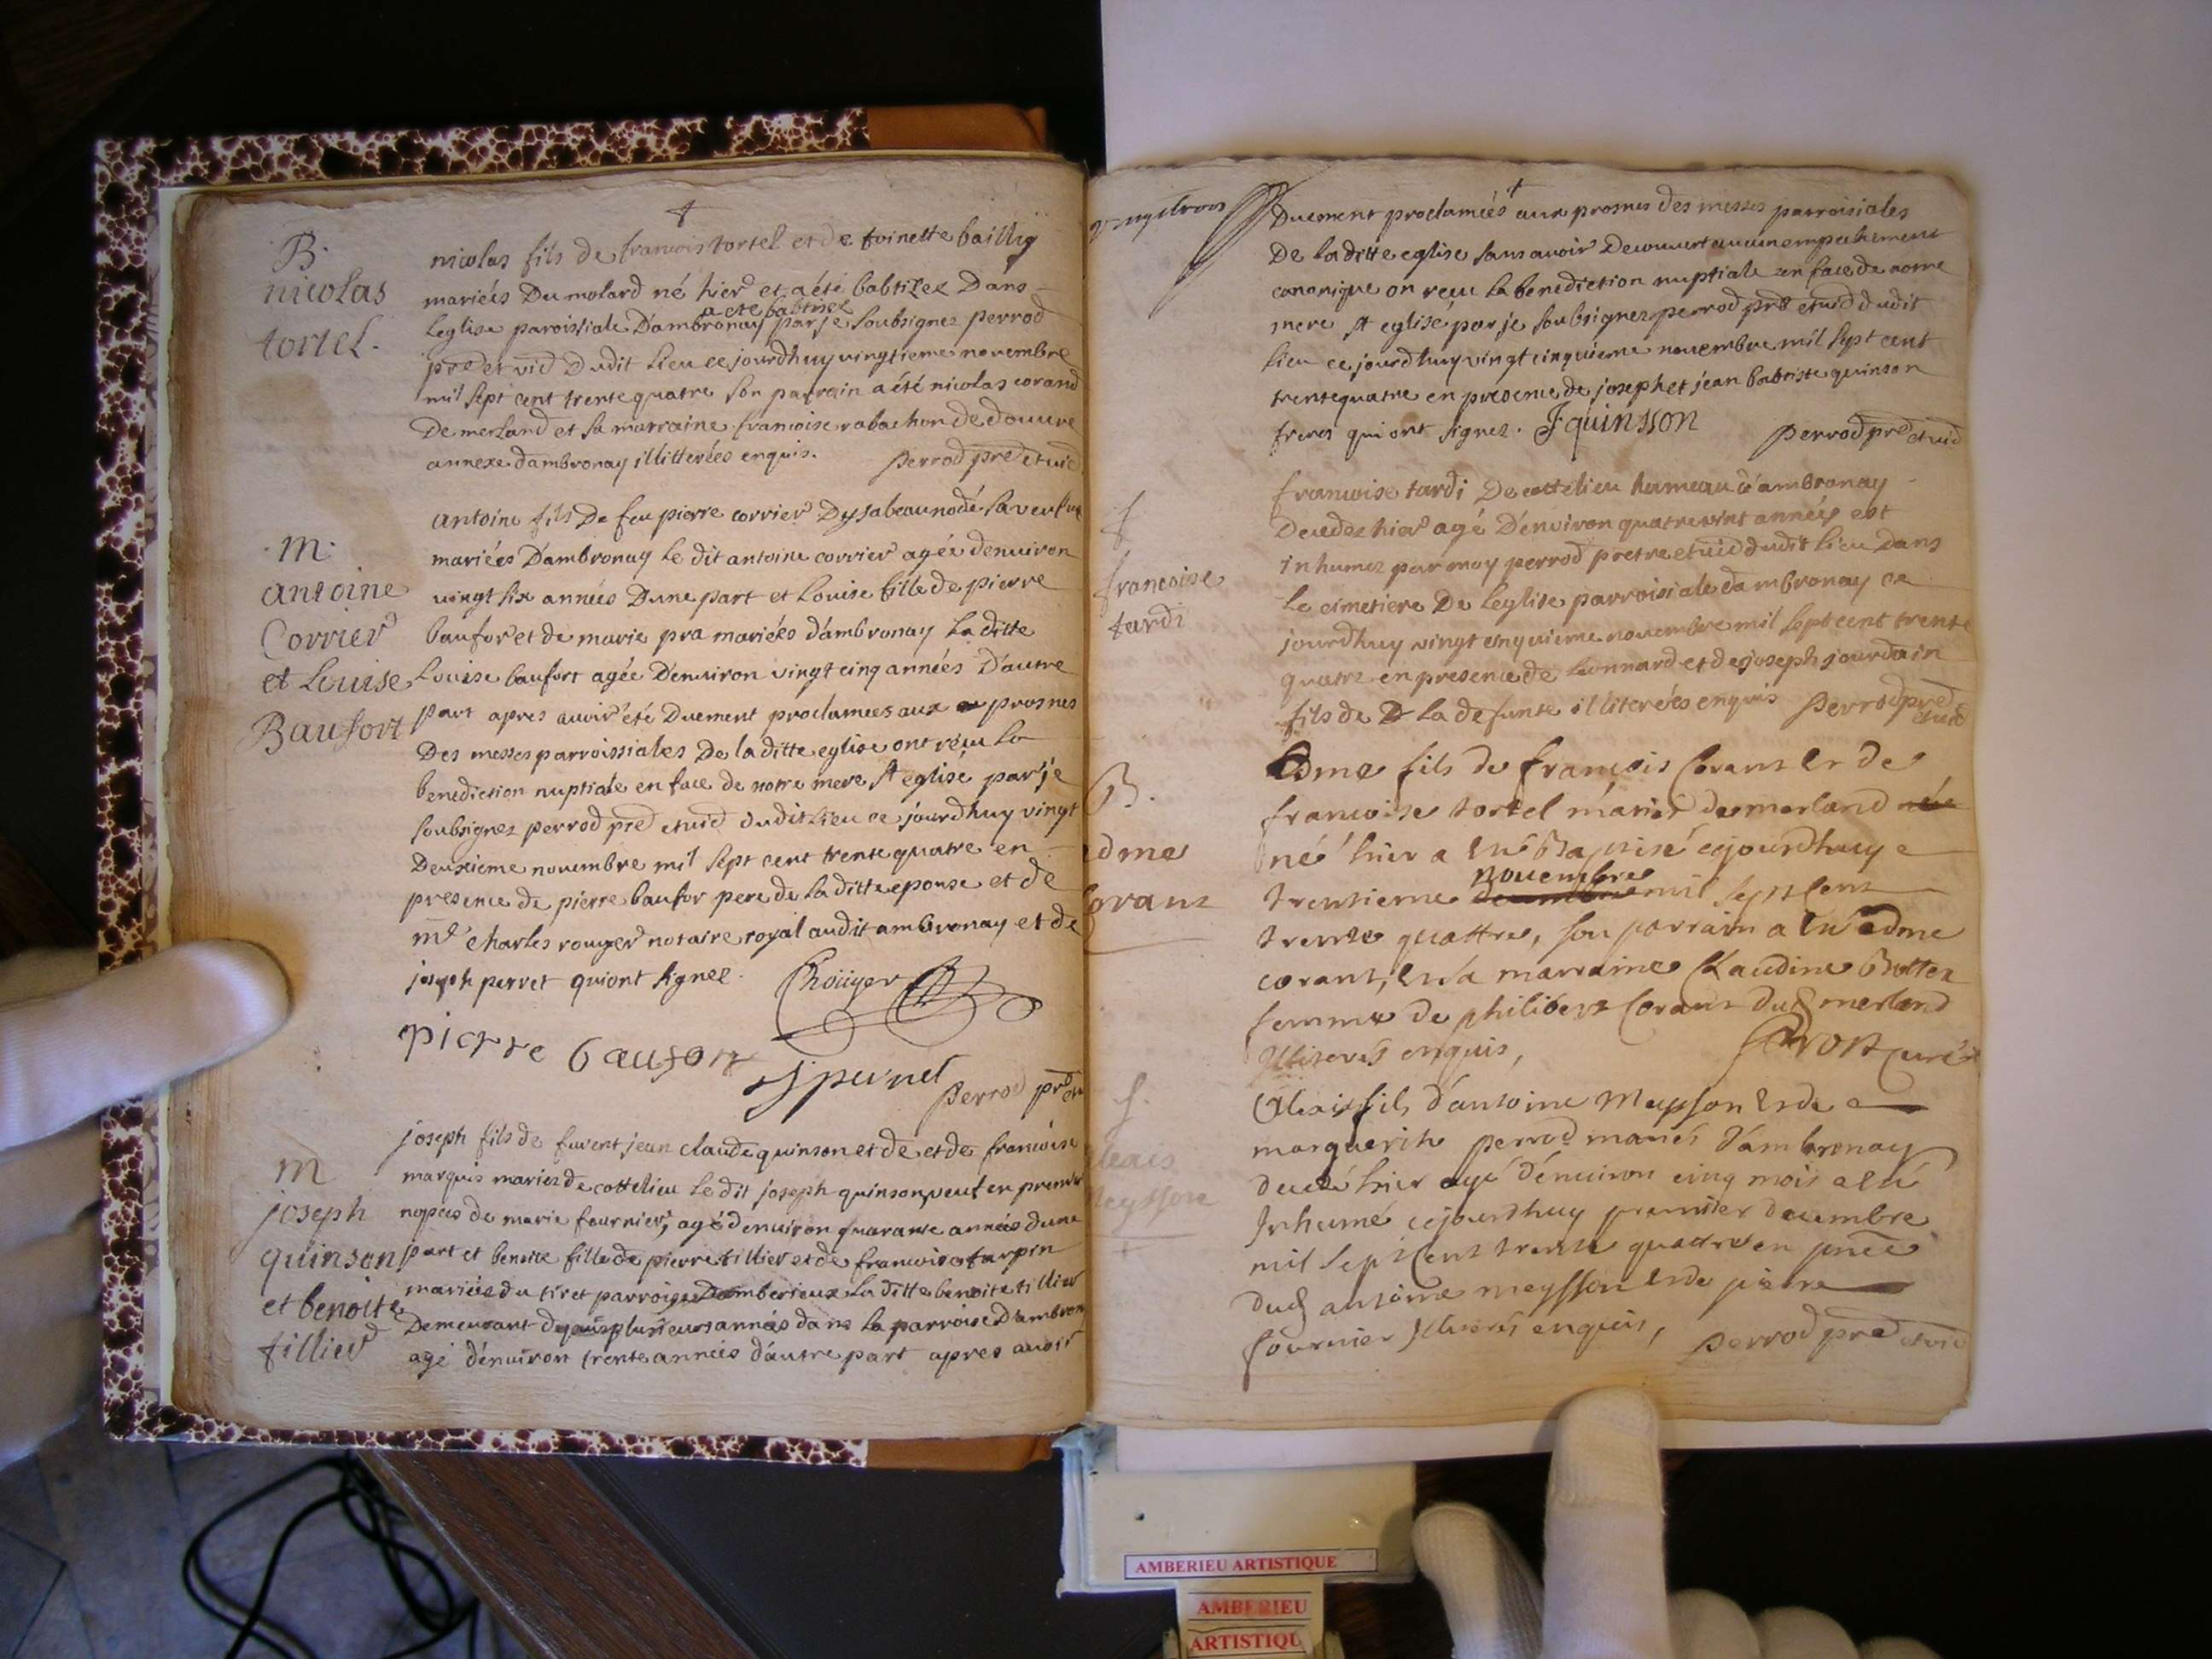 B.
nicolas
tortel.
nicolas fils de francois tortel et de toinette baillig
mariées Du molard né hier et a été babtizez Dans
a ete babtisez
leglise paroissiale Dambronay par je soubsignez perrod
pre et vic Dudit lieu ce jourdhuy vingtieme novembre
mil sept cent trente quatre son parrain a été nicolas corand
De merland et sa marraine francoise rabachon de douvre
annexe dambronay illitterées enquis. perrod pre et vic
m.
antoine
Corrier
et Louise
Baufort
antoine fils De feu pierre corrier Dysabeau nodé sa veufve
mariées D'ambronay le dit antoine corrier agée denuiron
vingt six années Dune part et Louise fille de pierre
baufor et de marie pra mariées d'ambronay la ditte
Louise baufort agée D'enuiron vingt cinq années D'autre
part apres auoir été Duement proclamees aux prosnes
Des messes parroissiales De la ditte eglise ont réçu la
benediction nuptiale en face de notre mere st eglise par je
soubsignez perrod pre et vic dudit lieu ce jourdhuy vingt
Deuxieme novembre mil sept cent trente quatre en
presence de pierre baufor pere de la ditte epouse et de
me charles rouyer notaire royal audit ambronay et de
joseph perret qui ont signee.
Choüyer
pierre baufort
J pernet
perrod pre et
m
joseph
quinson
et benoite
tillier
joseph fils de furent jean claude quinson et de et de francoise
marquis mariez de cottelieu le dit joseph quinson veuf en premier
nopces de marie fournier, agé denuiron quarante années dune
part et benoite fille de pierre tillier et de francoise turpin
mariées du tiret parroisse Damberieux la ditte benoite tillier
Demeurant depuis plusieurs années dans la parroise D'ambron
agé d'enuiron trente années d'autre part apres auoir
Duement proclamées aux prosnes des messes parroisiales
De la ditte eglise sans auoir Decouuert aucun empechement
canonique on reçu la benediction nuptiale en face de notre
mere st eglise par je soubsignez perrod pre et vic dudit
lieu ce jourdhuy vingt cinquieme nouembre mil sept cent
trente quatre en presence de joseph et jean babtiste quinson
freres qui ont signez. J quinsson perrod pre et uic
f
francoise
tardi
francoise tardi De cottelieu hameau d'ambronay
Decedez hier agé D'enuiron quatrevint années est
inhumez par moy perrod pretre et uic dudit lieu Dans
le cimetiere De leglise parroisiale dambronay ce
jourdhuy vingt cinquieme nouembre mil sept cent trente
quatre en presence de Leonnard et de joseph jourdain
fils de la defunte illiterées enquis perrod pre
et uic
B.
edme
Corant
Edme fils de françois Corant et de
francoise tortel mariés de merland née
né hier a été Baptisé cejourdhuy
novembre
trentieme decembre mil sept cent
trente quattre, son parrain a été edme
corant, et sa marraine Claudine Bottex
femme de philibert Corant dud merland
illiterés enquis, curé
f.
alexis
Meysson
Alexis fils d'antoine Meysson et de
marguerite perrod mariés d'ambronay
decedé hier agé d'enuiron cinq mois a été
Inhumé cejourdhuy premier decembre
mil sept cent trente quattre en pñce
dud antoine meysson et de pierre
fournier illiterés enquis, perrod pre et vic
AMBERIEU ARTISTIQUE
AMBERIEU
ARTISTIQU